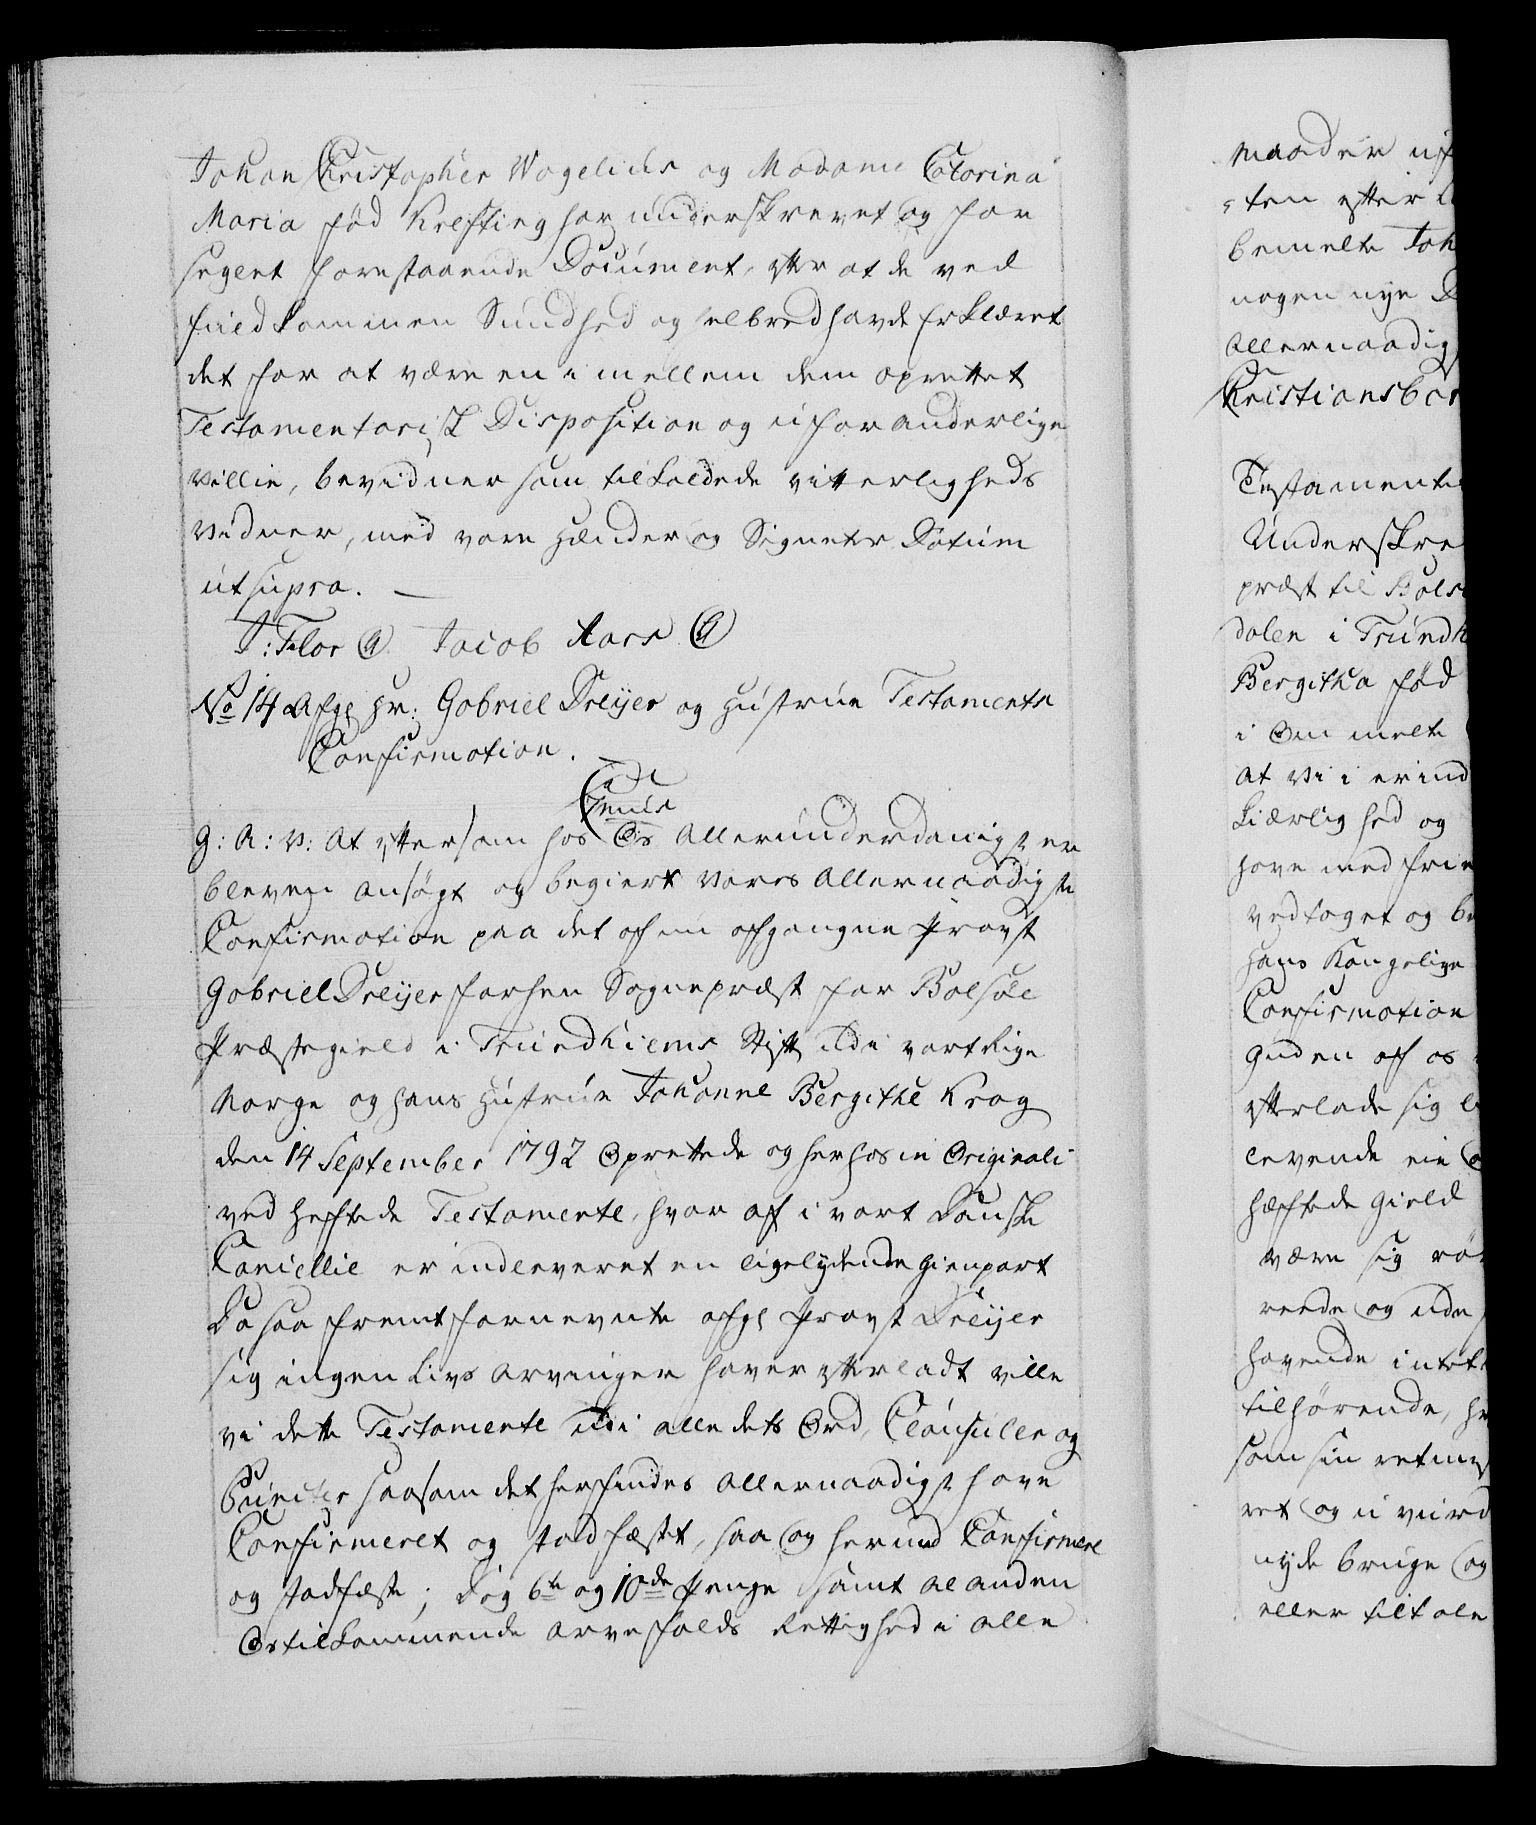 Johan Christopher Wogelius og Madame Catarina
Maria fød Krefting har underskrevet og for
seglet forestaaende Document, efter at de ved
fuldkommen Sundhed og helbred havde Erklæret
det for at være en imellem dem oprettet
Testamentarisk Disposition og uforanderlige
Villie, bevidner som tilkaldede vitterligheds
Vidner, med vore Hænder og Signeter Datum
utsupra. —
J: Flor @ Jacob Aars @
No 14 Afg: Hr: Gabriel Dreÿer og Hustrue Testaments
Confirmation.
G: A: V: At eftersom hos Os Allerunderdanigst er
bleven ansøgt og begiert Vores Allernaadigste
Confirmation paa det af nu afgangne Provst
Gabriel Dreÿer forhen Sognepræst for Bolsøe
Præstegield i Trundhiems Stift udi vort Rige
Norge og hans Hustrue Johanne Bergithe Krog
den 14 September 1792 Oprettede og herhos in Originali
ved heftede Testamente, hvor af i vort Danske
Cancellie er indleveret en ligelydende Gienpart
Da saa fremt fornevnte afg: Provst Dreÿer
sig ingen Livs Arvinger haver efterladt ville
vi dette Testamente udi alle dets Ord, Clausuler og
Puncter saasom det herfindes Allernaadigst have
Confirmeret og stadfæstet, saa og herved Confirmere
og stadfæste; Dog 6te og 10de Penge samt al anden
Os tilkommende Arvefalds Rettighed i alle
maader uf
ten efter
bemelte Joh
nogen nye D
Allernaadig
Christiansbor
Testamente
Underskre
præst til Bols
dalen i Trundh
Bergitha fød
i Om melte
at Vi i erind
Kiærlighed og
have med frie
vedtaget og be
hans Kongelige
Confirmation
Enden af os
efterlade sig
levende eie
hæftede Gield
være sig rør
reede og ude
havende intet
tilhørende, h
som sin retmes
ret og u viird
nyde bruge og
eller tiltale